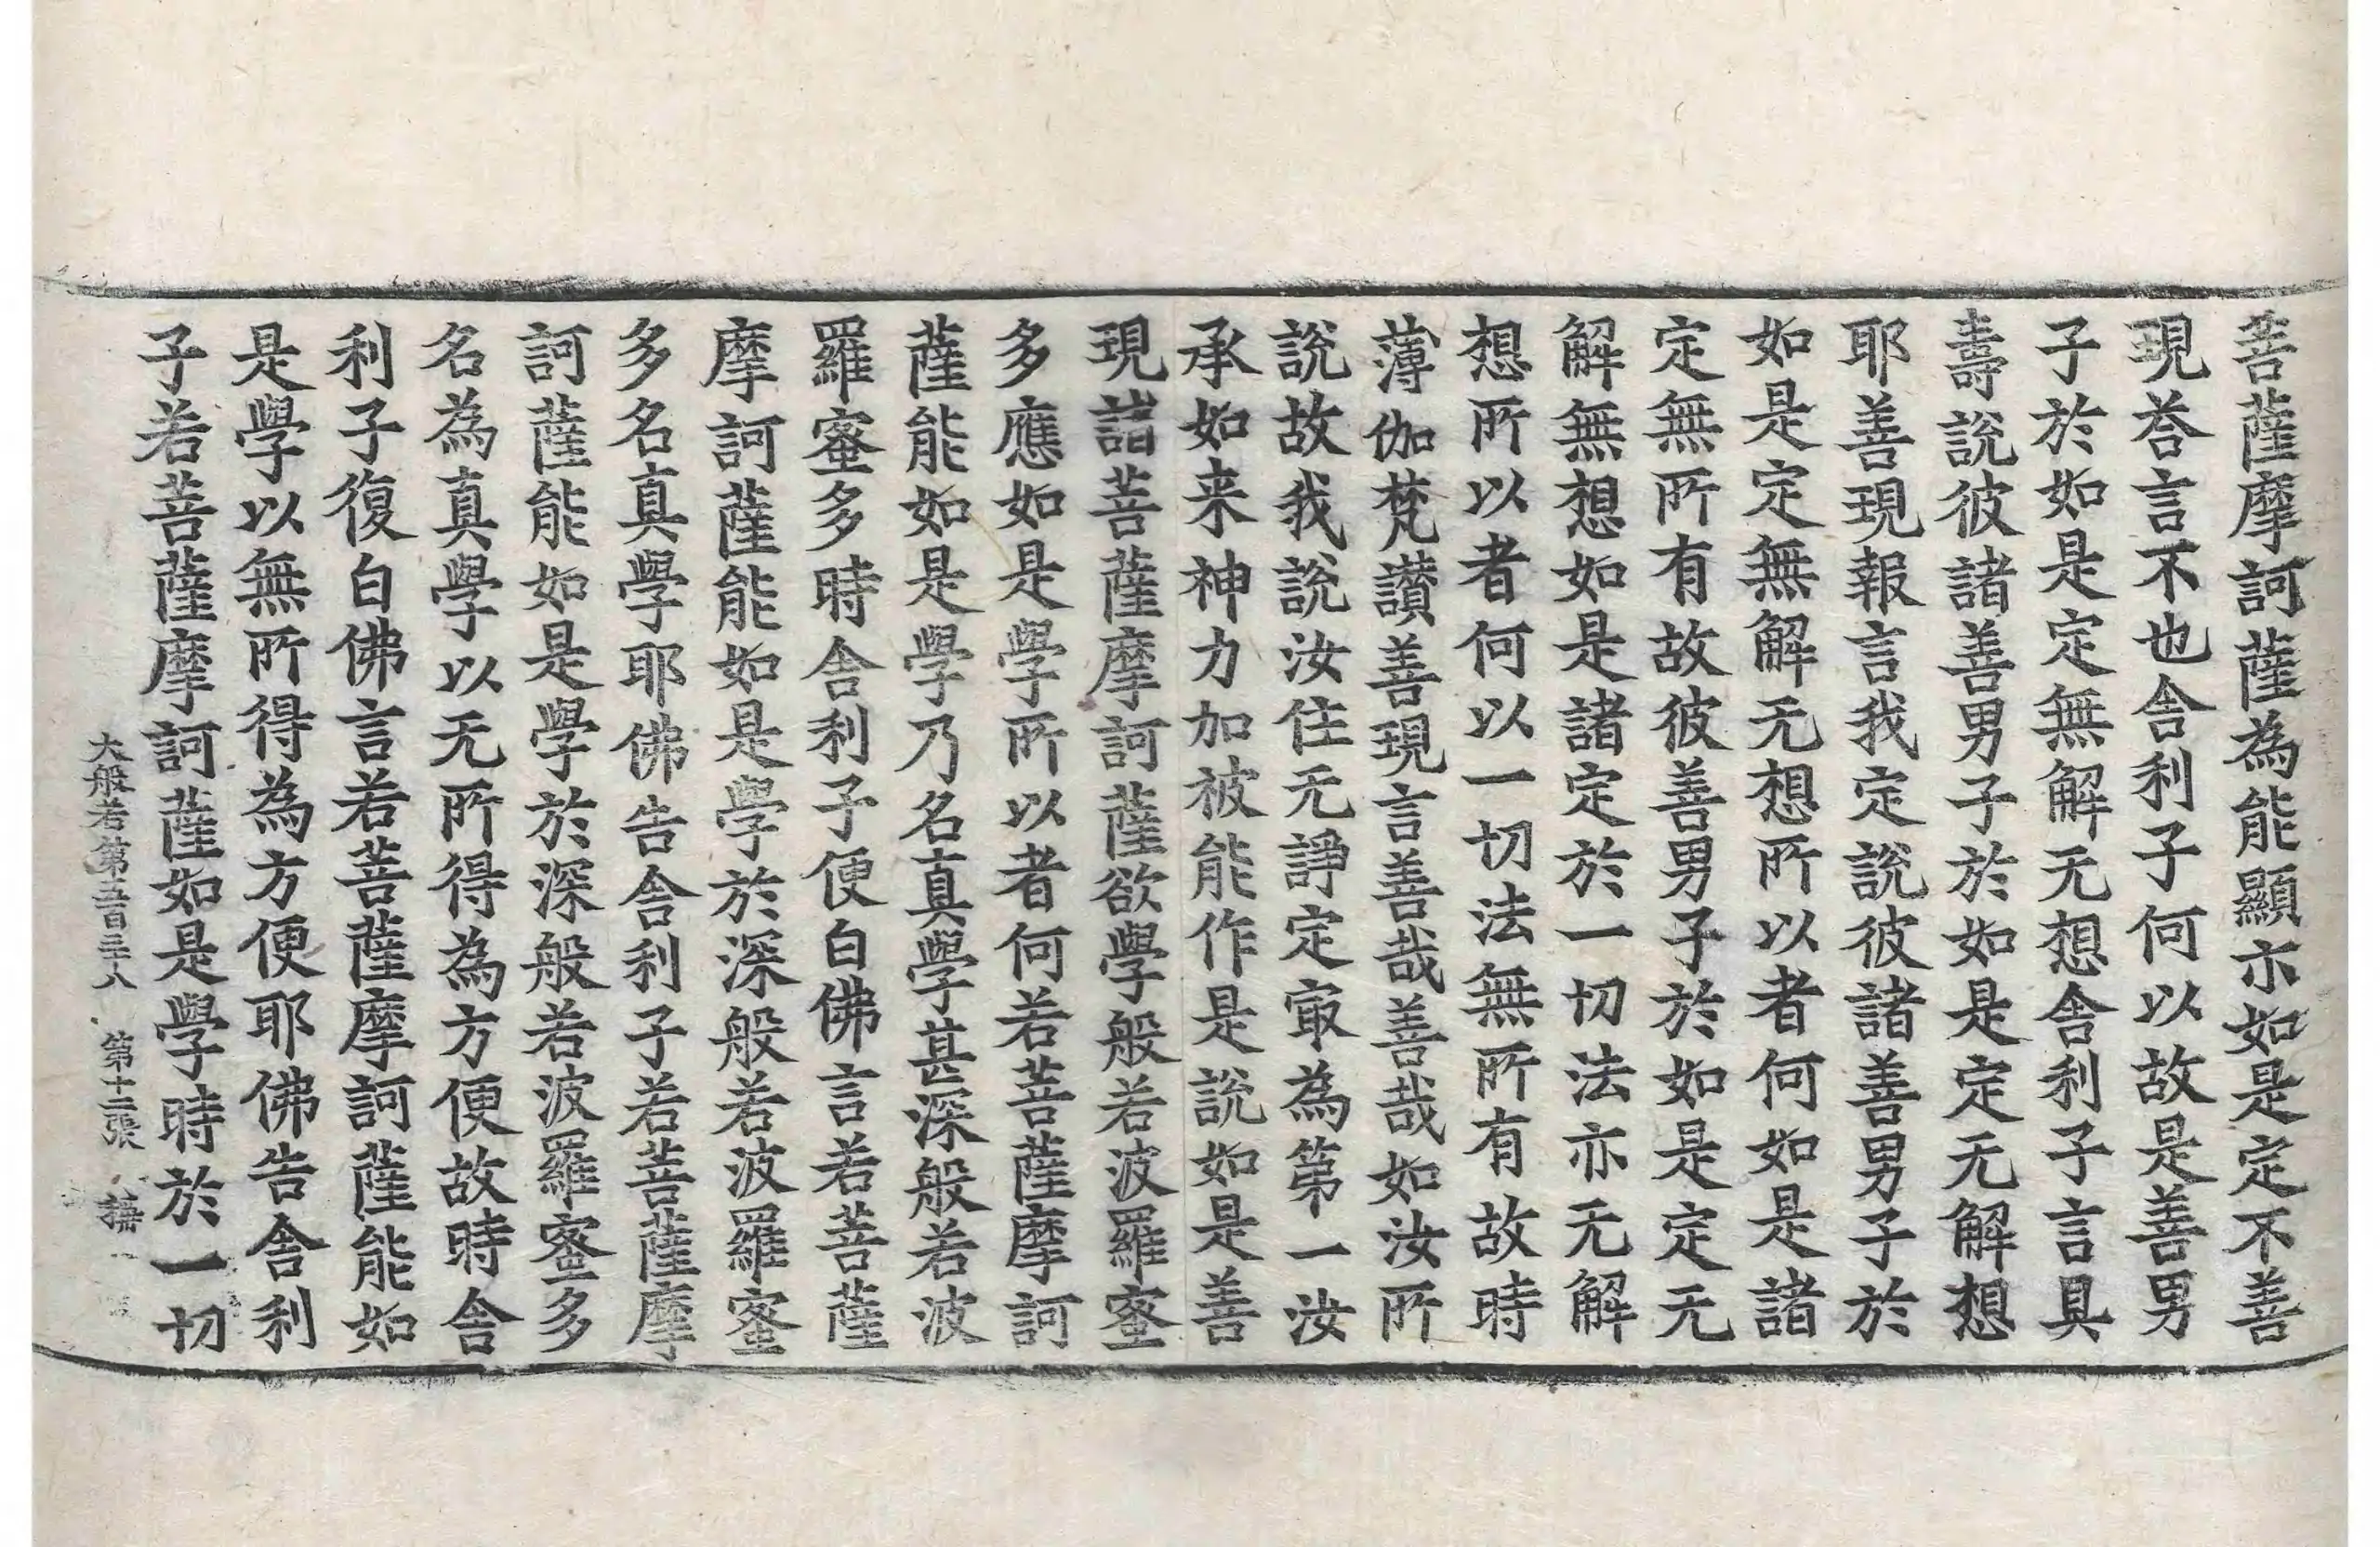 菩薩摩訶薩為能顯亦如是定不善
現荅言不也舎利子何以故是善男
子於如是定無解无想舎利子言具
壽說彼諸善男子於如是定无解想
耶善現報言我定說彼諸善男子於
如是定無解无想所以者何如是諸
定無所有故彼善男子於如是定无
解無想如是諸定於一切法亦无解
想所以者何以一切法無所有故時
薄伽梵讃善現言善哉善哉如汝所
說故我說汝住无諍定冣為第一汝
承如来神力加被能作是說如是善
現諸菩薩摩訶薩欲學般若波羅蜜
多應如是學所以者何若菩薩摩訶
薩能如是學乃名真學甚深般若波
羅蜜多時舎利子便白佛言若菩薩
摩訶薩能如是學於深般若波羅蜜
多名真學耶佛告舎利子若菩薩摩
訶薩能如是學於深般若波羅蜜多
名為真學以无所得為方便故時舎
利子復白佛言若菩薩摩訶薩能如
是學以無所得為方便耶佛告舎利
子若菩薩摩訶薩如是學時於一切
大般若第五百三十八 第十二張